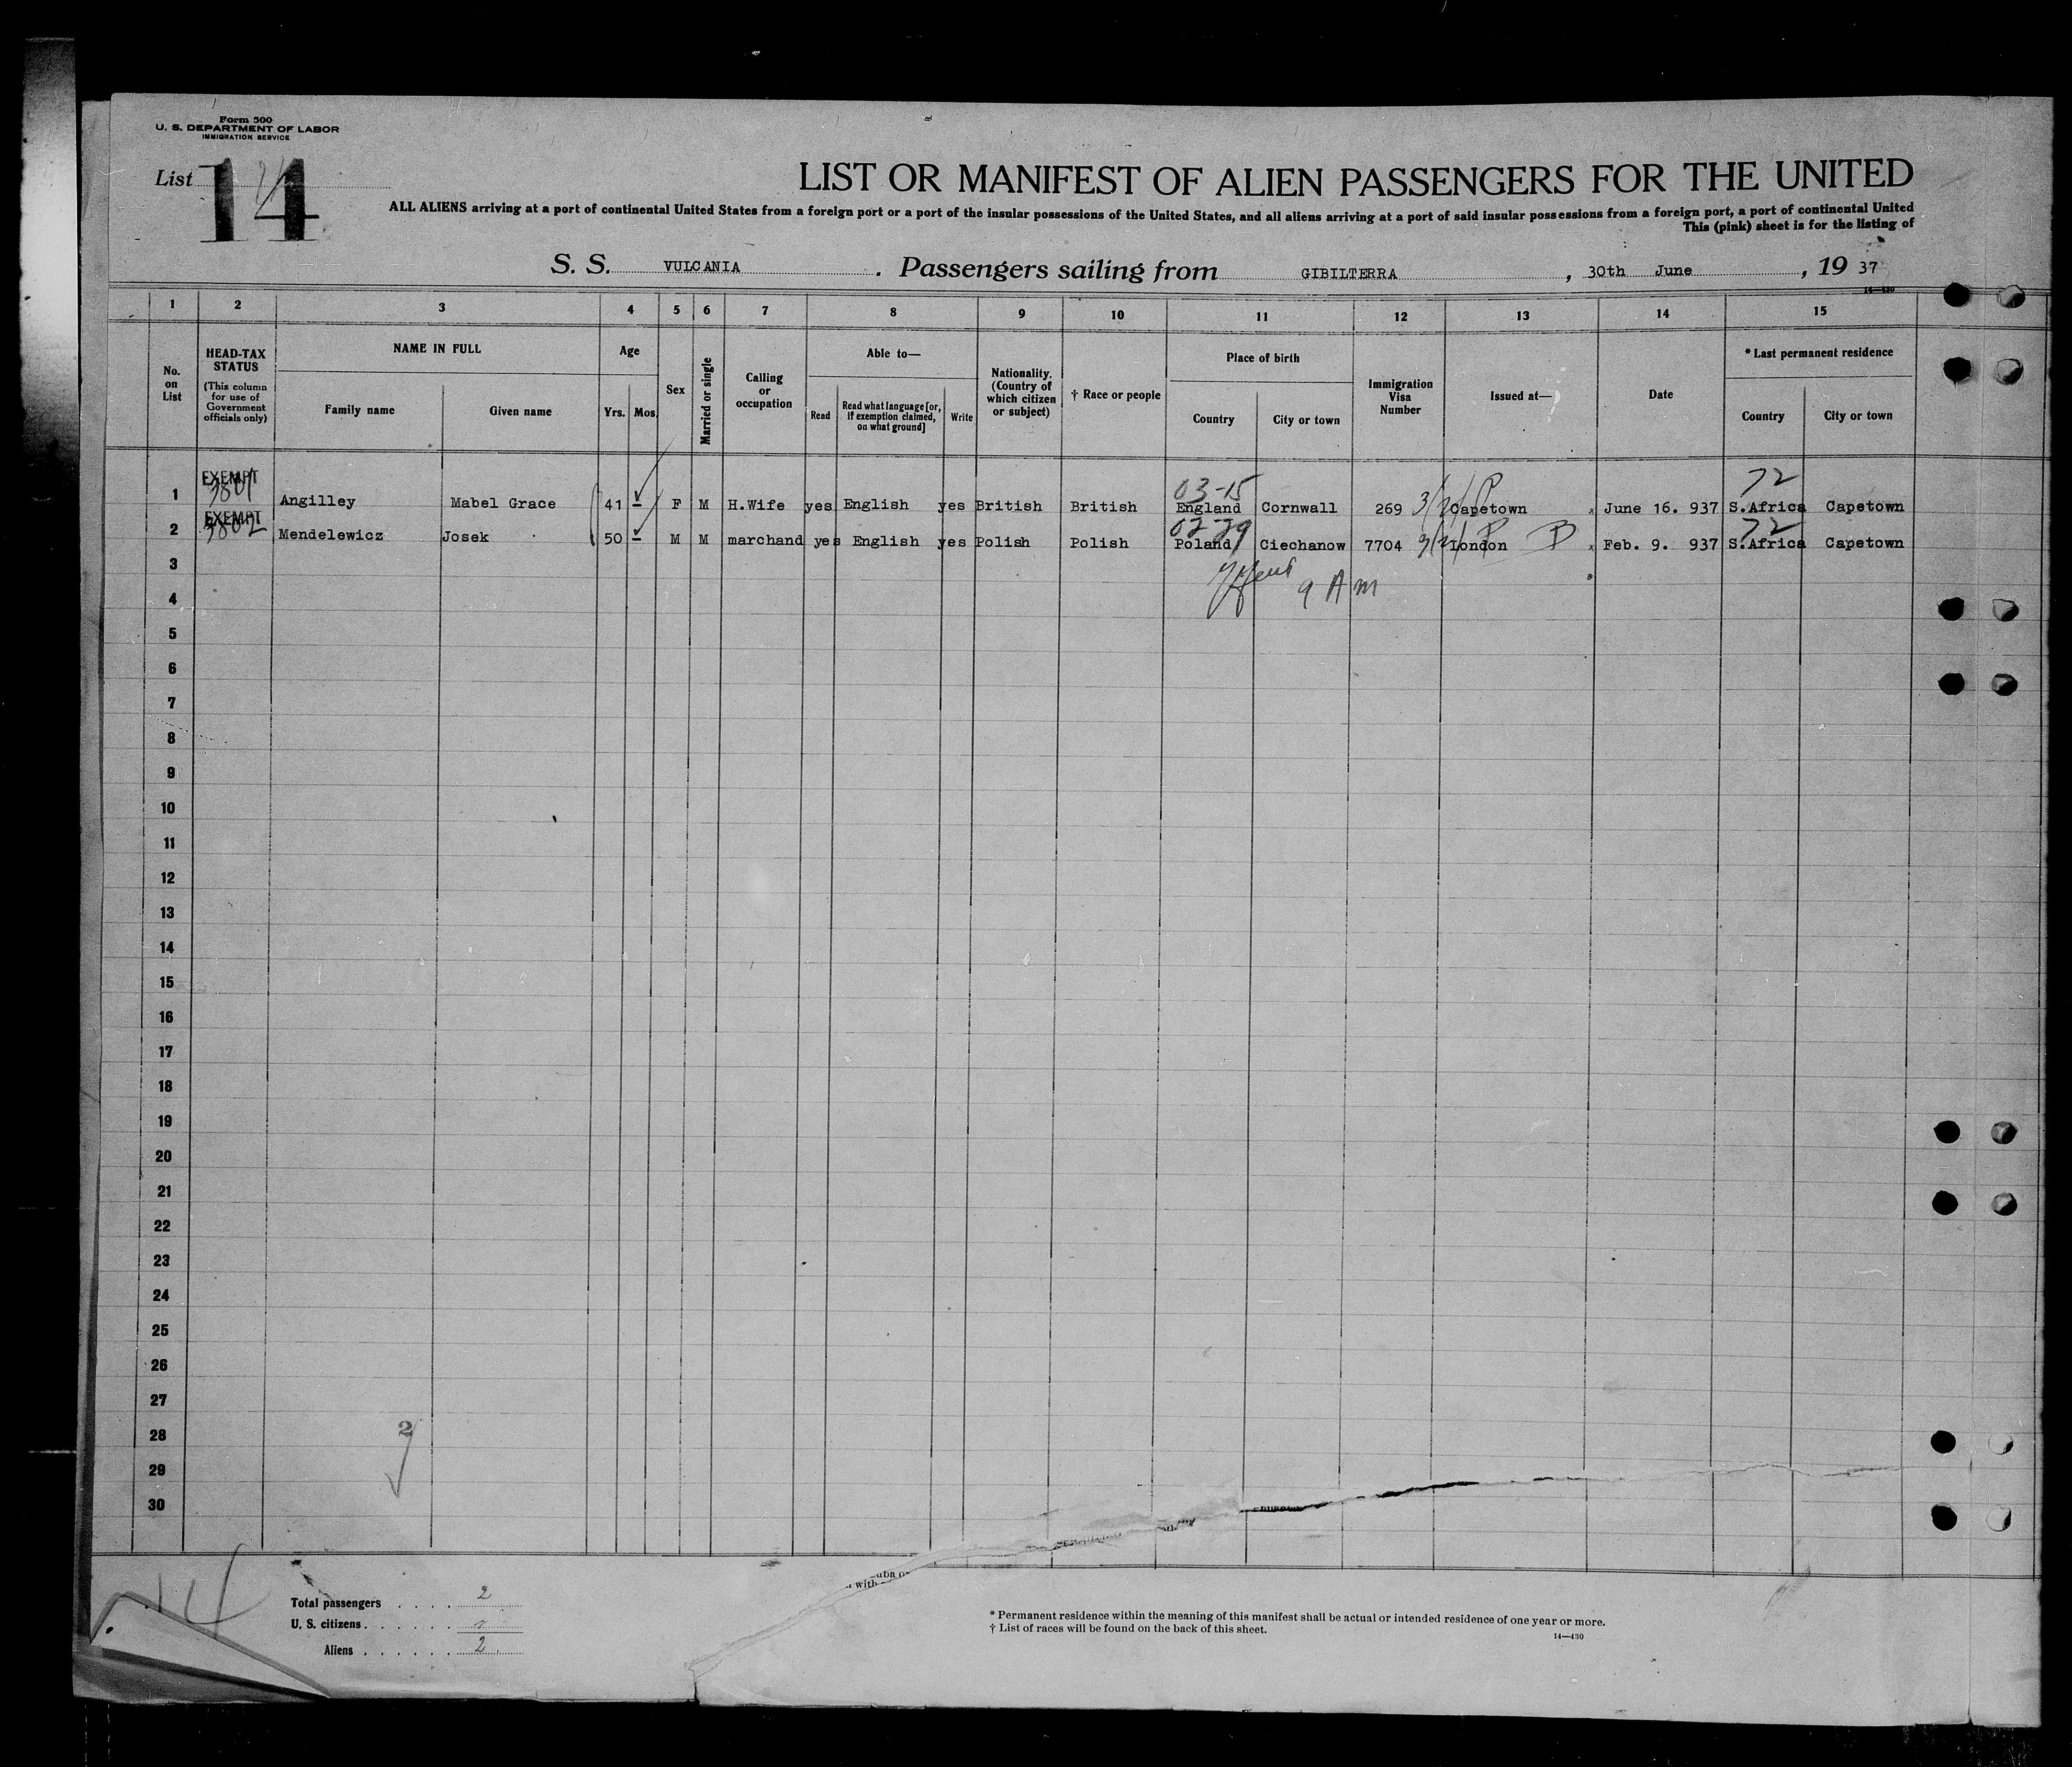 Form 500
U. S. DEPARTMENT OF LABOR
IMMIGRATION SERVICE
List 14
LIST OR MANIFEST OF ALIEN PASSENGERS FOR THE UNITED
ALL ALIENS arriving at a port of continental United States from a foreign port or a port of the insular possessions of the United States, and all aliens arriving at a port of said insular possessions from a foreign port, a port of continental United
This (pink) sheet is for the listing of
S. S. VULCANIA . Passengers sailing from GIBILTERRA , 30th June , 19 37
14—430
1 2 3 4 5 6 7 8 9 10 11 12 13 14 15
No. on List
HEAD-TAX STATUS
(This column for use of Government officials only)
NAME IN FULL
Family name Given name
Age
Yrs. Mos.
Sex
Married or single
Calling or occupation
Able to—
Read
Read what language [or, if exemption claimed, on what ground]
Write
Nationality. (Country of which citizen or subject)
† Race or people
Place of birth
Country City or town
Immigration Visa Number
Issued at—
Date
* Last permanent residence
Country City or town
EXEMPT 03-15 72
1 3801 Angilley Mabel Grace 41 – F M H.Wife yes English yes British British England Cornwall 269 Capetown June 16. 937 S.Africa Capetown
EXEMPT 72
2 3802 Mendelewicz Josek 50 – M M marchand yes English yes Polish Polish Poland Ciechanow 7704 London Feb. 9. 937 S.Africa Capetown
3
9 AM
4
5
6
7
8
9
10
11
12
13
14
15
16
17
18
19
20
21
22
23
24
25
26
27
28 2
29
30
14
Total passengers . . . . 2
U. S. citizens . . . . . .
Aliens . . . . . . 2
* Permanent residence within the meaning of this manifest shall be actual or intended residence of one year or more.
† List of races will be found on the back of this sheet.
14—430